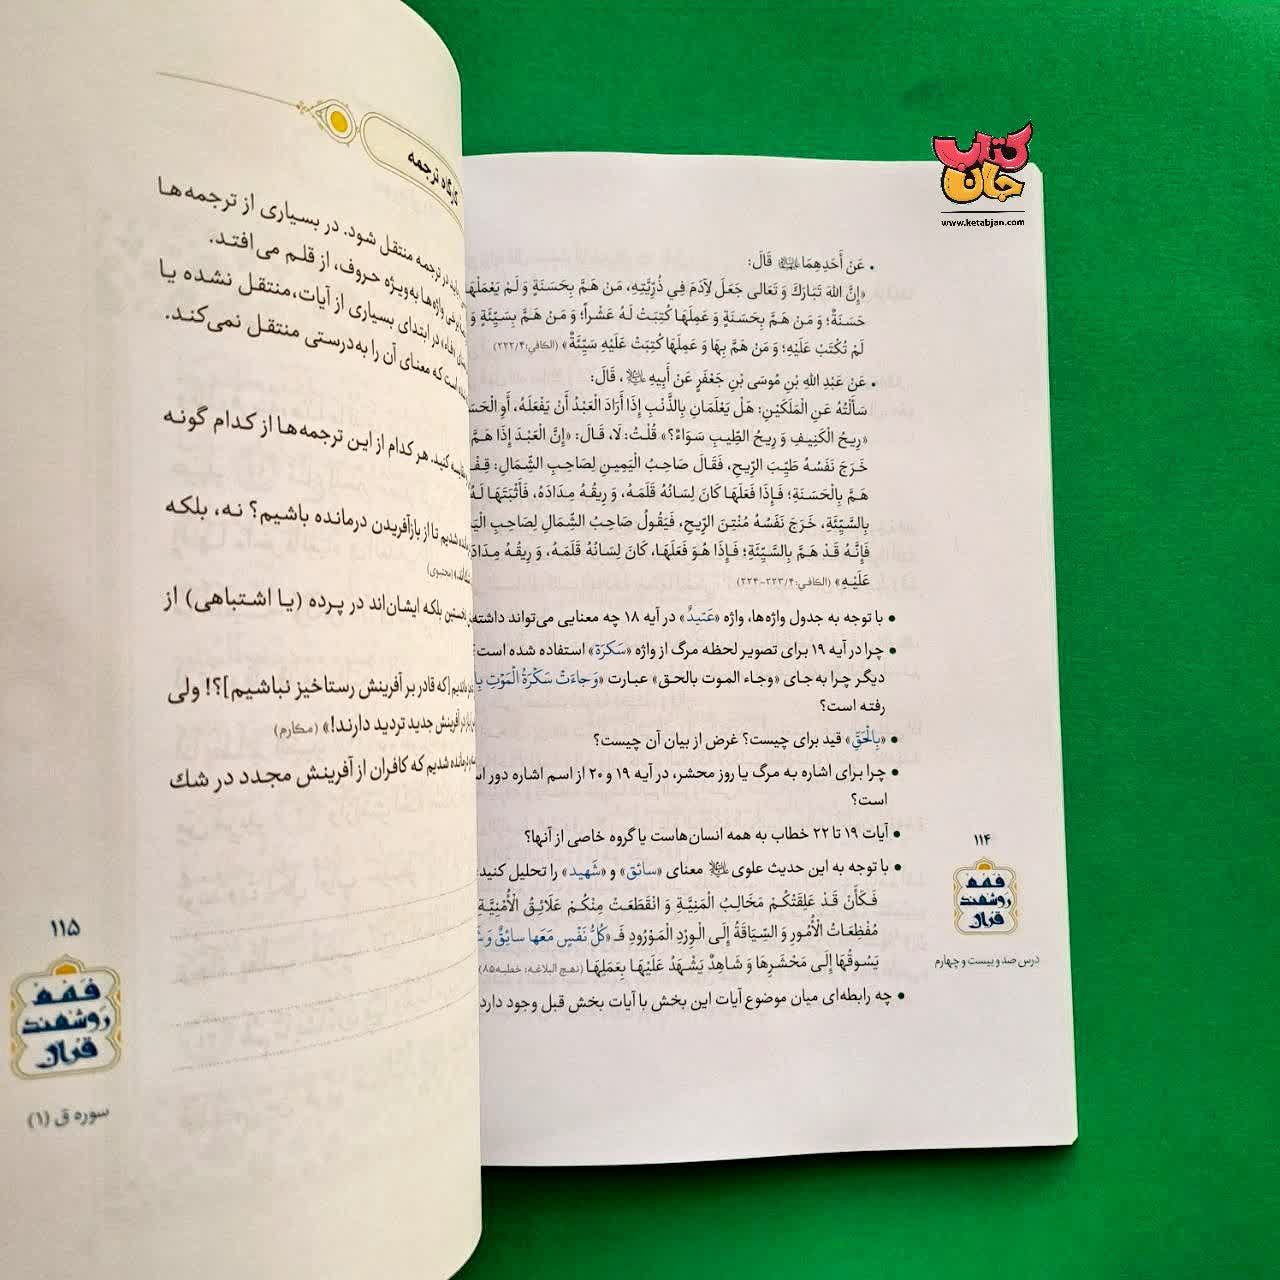 کتاب
جان
www.ketabjan.com
• عَنْ أَحَدِهِمَا قَالَ:
«إِنَّ اللهَ تَبَارَكَ وَ تَعَالى جَعَلَ لِآدَمَ فِي ذُرِّيَّتِهِ، مَن هَمَّ بِحَسَنَةٍ وَ لَمْ يَعْمَلْهَا
حَسَنَةٌ؛ وَ مَن هَمَّ بِحَسَنَةٍ وَ عَمِلَهَا كُتِبَتْ لَهُ عَشْراً؛ وَ مَن هَمَّ بِسَيِّئَةٍ وَ
لَمْ تُكْتَبْ عَلَيْهِ؛ وَ مَنْ هَمَّ بِهَا وَ عَمِلَهَا كُتِبَتْ عَلَيْهِ سَيِّئَةٌ» (الکافي: ۲۲۲/۴)
• عَنْ عَبْدِ اللهِ بْنِ مُوسَى بْنِ جَعْفَرٍ عَنْ أَبِيهِ ، قَالَ:
سَأَلْتُهُ عَنِ الْمَلَكَيْنِ: هَلْ يَعْلَمَانِ بِالذَّنْبِ إِذَا أَرَادَ الْعَبْدُ أَنْ يَفْعَلَهُ، أَوِ
«رِيحُ الْكَنِيفِ وَ رِيحُ الطِّيبِ سَوَاءٌ؟» قُلْتُ: لَا، قَالَ: «إِنَّ الْعَبْدَ إِذَا هَمَّ
خَرَجَ نَفَسُهُ طَيِّبَ الرِّيحِ، فَقَالَ صَاحِبُ الْيَمِينِ لِصَاحِبِ الشِّمَالِ:
هَمَّ بِالْحَسَنَةِ؛ فَإِذَا فَعَلَهَا كَانَ لِسَانُهُ قَلَمَهُ، وَ رِيقُهُ مِدَادَهُ، فَأَثْبَتَهَا لَهُ
بِالسَّيِّئَةِ، خَرَجَ نَفَسُهُ مُنْتِنَ الرِّيحِ، فَيَقُولُ صَاحِبُ الشِّمَالِ لِصَاحِبِ
فَإِنَّهُ قَدْ هَمَّ بِالسَّيِّئَةِ؛ فَإِذَا هُوَ فَعَلَهَا، كَانَ لِسَانُهُ قَلَمَهُ، وَ رِيقُهُ
عَلَيْهِ» (الکافي: ۲۲۳/۴-۲۲۴)
• با توجه به جدول واژه‌ها، واژه «عَتيدٌ» در آیه ۱۸ چه معنایی می‌تواند داشته
• چرا در آیه ۱۹ برای تصویر لحظه مرگ از واژه «سَكرَة» استفاده شده است؟
دیگر چرا به جای «وجاء الموت بالحق» عبارت «وَجاءَتْ سَكْرَةُ الْمَوْتِ
رفته است؟
• «بِالْحَقِّ» قید برای چیست؟ غرض از بیان آن چیست؟
• چرا برای اشاره به مرگ یا روز محشر، در آیه ۱۹ و ۲۰ از اسم اشاره دور
است؟
• آیات ۱۹ تا ۲۲ خطاب به همه انسان‌هاست یا گروه خاصی از آنها؟
• با توجه به این حدیث علوی معنای «سائق» و «شَهید» را تحلیل کنید:
فَكَأَن قَدْ عَلِقَتْكُمْ مَخَالِبُ الْمَنِيَّةِ وَ انْقَطَعَتْ مِنْكُمْ عَلَائِقُ الْأُمْنِيَّةِ
مُفْظِعَاتُ الْأُمُورِ وَ السِّيَاقَةُ إِلَى الْوِرْدِ الْمَوْرُودِ فَـ «كُلُّ نَفْسٍ مَعَها سائِقٌ
يَسُوقُهَا إِلَى مَحْشَرِهَا وَ شَاهِدٌ يَشْهَدُ عَلَيْهَا بِعَمَلِهَا (نهج البلاغه: خطبه ۸۵)
• چه رابطه‌ای میان موضوع آیات این بخش با آیات بخش قبل وجود دارد
۱۱۴
فهم
روشمند
قرآن
درس صد و بیست و چهارم
کارگاه ترجمه
در ترجمه منتقل شود. در بسیاری از ترجمه‌ها
برخی واژه‌ها به‌ویژه حروف، از قلم می‌افتد.
در ابتدای بسیاری از آیات، منتقل نشده یا
است که معنای آن را به‌درستی منتقل نمی‌کند.
کنید. هر کدام از این ترجمه‌ها از کدام گونه
شدیم تا از بازآفریدن درمانده باشیم؟ نه، بلکه
(مجتبوی)
نخستین بلکه ایشان‌اند در پرده (یا اشتباهی) از
ماندیم [که قادر بر آفرینش رستاخیز نباشیم]؟! ولی
در آفرینش جدید تردید دارند!» (مکارم)
درمانده شدیم که کافران از آفرینش مجدد در شك
۱۱۵
فهم
روشمند
قرآن
سوره ق (۱)